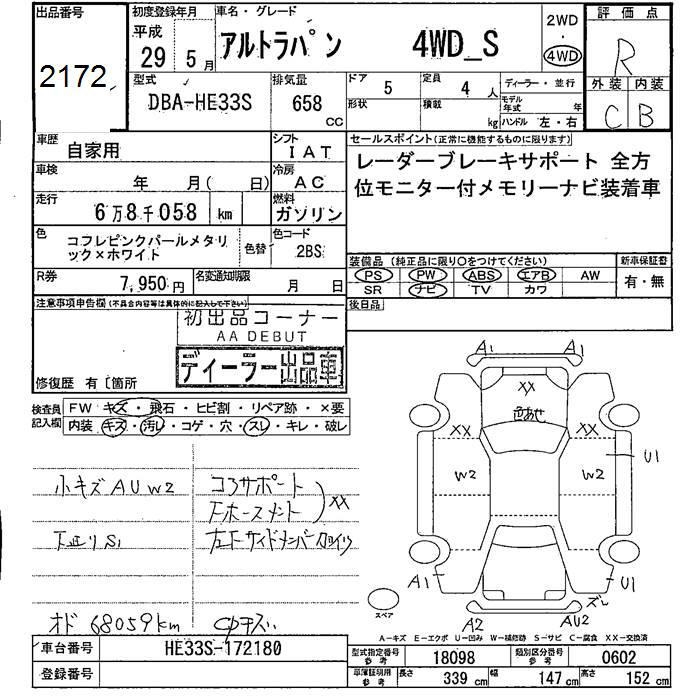 出品番号
2172
初度登録年月
平成
29年 5月
車名・グレード
アルトラパン 4WD_S
2WD
・
4WD
評価点
R
外装 内装
C B
型式
DBA-HE33S
排気量
658
CC
ドア
5
定員
4人
形状
積載
kg
ディーラー・並行
モデル年式 年
ハンドル 左・右
車歴
自家用
シフト
IAT
車検
年 月( 日)
冷房
AC
走行
6万8千058 km
燃料
ガソリン
色
コフレピンクパールメタリ
ック×ホワイト
色替
色コード
2BS
R券
7,950円
名変通知期限
月 日
セールスポイント(正常に機能するものに限ります)
レーダーブレーキサポート 全方
位モニター付メモリーナビ装着車
装備品 (純正品に限り○をつけてください)
PS PW ABS エアB AW
SR ナビ TV カワ
新車保証書
有・無
後日品
注意事項申告欄(不具合内容等は具体的に記入して下さい)
初出品コーナー
AA DEBUT
ディーラー出品車
修復歴 有〔箇所
検査員
記入欄
FW キズ・飛石・ヒビ割・リペア跡・×要
内装・キズ・汚レ・コゲ・穴・スレ・キレ・破レ
小キズ AUW2
コアサポート
F.ホースメント
XX
下廻りS1
左Fサイドメンバー
オド 68059km
A1 A1
XX
色あせ
XX XX
U1
W2 W2
A1
U1
スペア
A2
AU2
A-キズ E-エクボ U-凹み W-補修跡 S-サビ C-腐食 XX-交換済
車台番号
HE33S-172180
登録番号
型式指定番号
参考
18098
類別区分番号
参考
0602
車庫証明用
参考
長さ 339 cm
幅 147 cm
高さ 152 cm